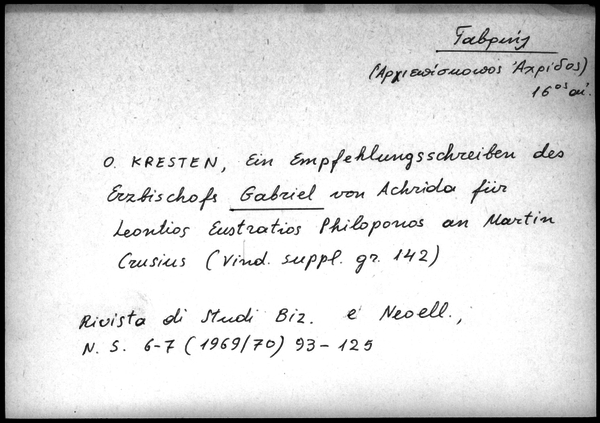 Γαβριήλ
(Αρχιεπίσκοπος Ἀχρίδος)
16ος αἰ.
O. KRESTEN, Ein Empfehlungsschreiben des
Erzbischofs Gabriel von Achrida für
Leontios Eustratios Philoponos an Martin
Crusius (Vind. suppl. gr. 142)
Rivista di Studi Biz. e Neoell.,
N. S. 6-7 (1969/70) 93-125